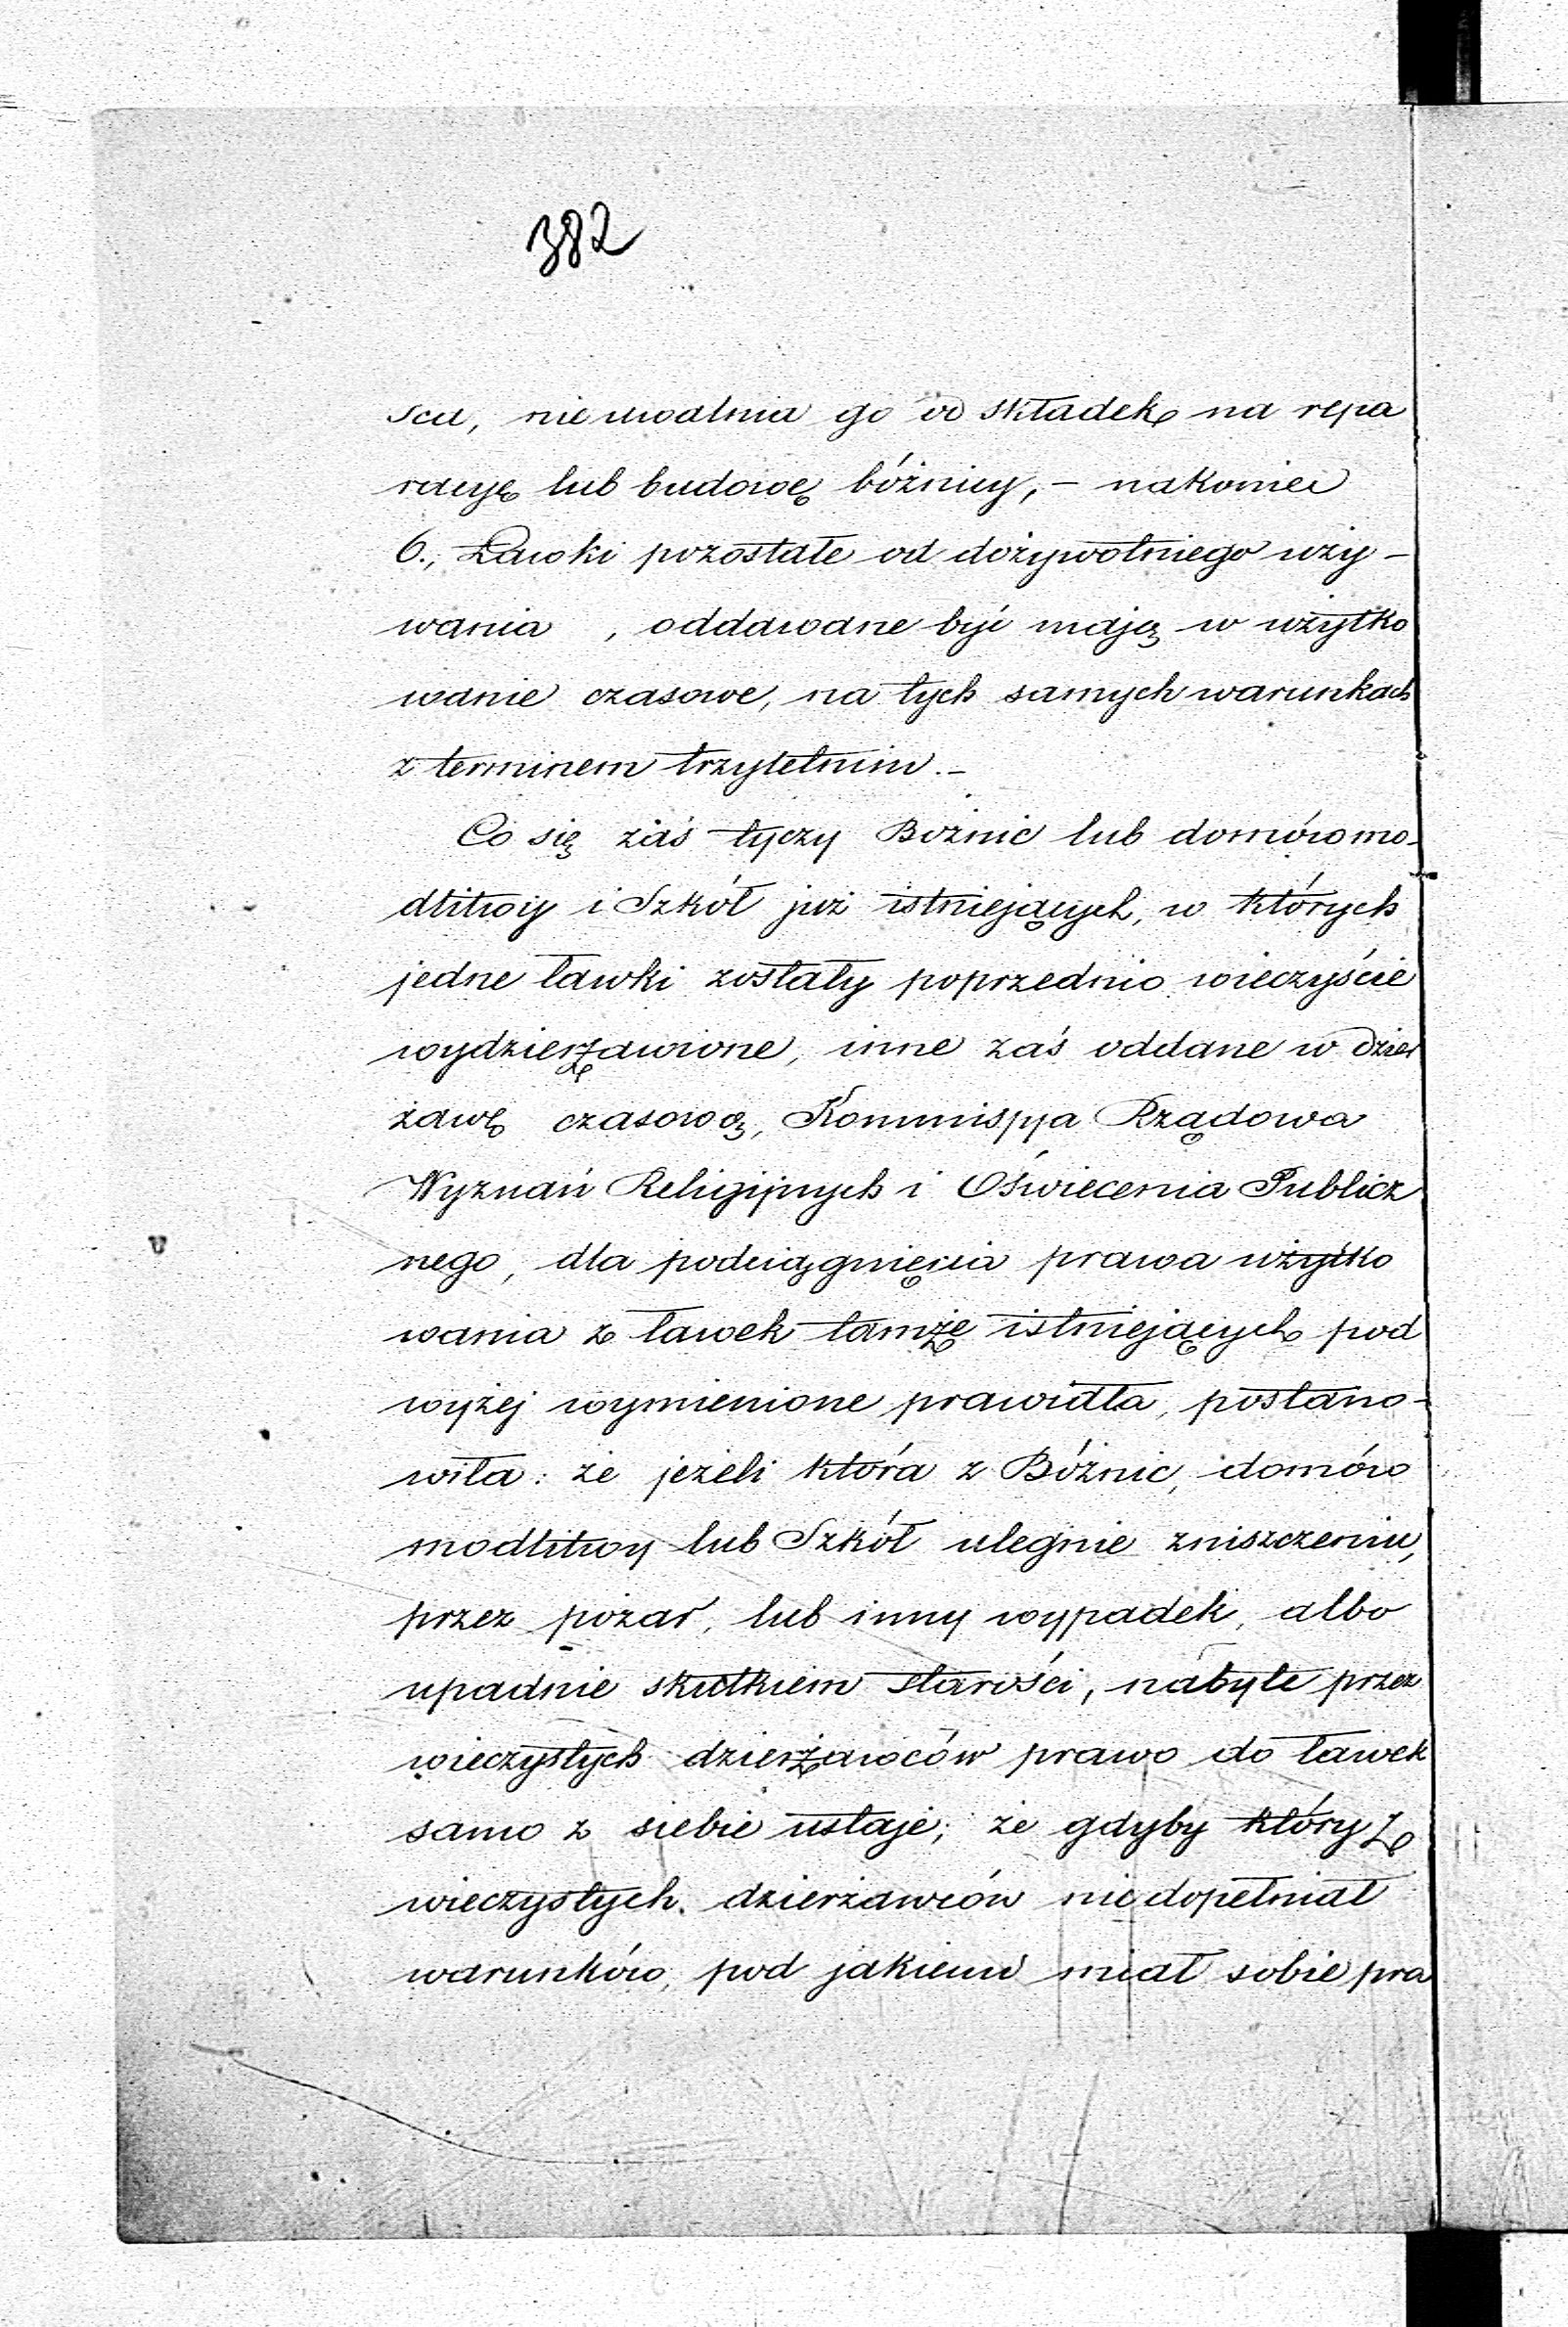 382
sca, nie uwalnia go od składek na repa
racyę lub budowę bóżnicy, – nakoniec
6., Ławki pozostałe od dożywotniego uży –
wania , oddawane być mają w użytko
wanie czasowe, na tych samych warunkach
z terminem trzyletnim. –
Co się zaś tyczy Bożnic lub domów mo-
dlitwy i Szkół już istniejących, w których
jedne ławki zostały poprzednio wieczyście
wydzierżawione, inne zaś oddane w dzier
żawę czasową, Kommissya Rządowa
Wyznań Religijnych i Oświecenia Publicz
nego, dla podciągnięcia prawa użytko
wania z ławek tamże istniejących pod
wyżej wymienione prawidła, postano-
wiła: że jeżeli która z Bóżnic, domów
modlitwy lub Szkół ulegnie zniszczeniu,
przez pożar, lub inny wypadek, albo
upadnie skutkiem starości, nabyte przez
wieczystych dzierżawców prawo do ławek
samo z siebie ustaje; że gdyby który z
wieczystych dzierżawców niedopełniał
warunków, pod jakiemi miał sobie pra